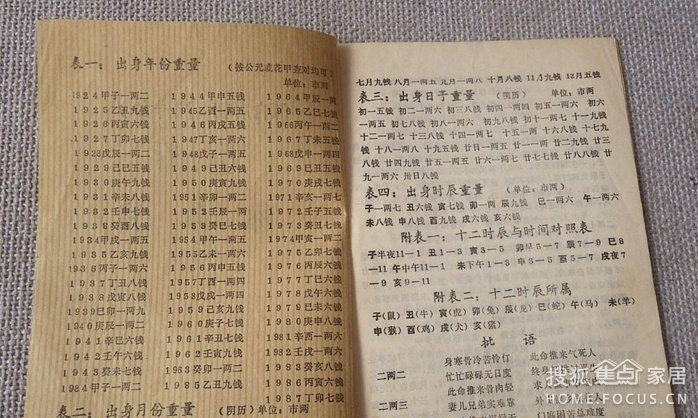 表一：出身年份重量
（按公元或花甲查对均可）
单位：市两
1924甲子一两二 1944甲申五钱 1964甲辰一两
1925乙丑九钱 1945乙酉一两五 1965乙巳七钱
1926丙寅六钱 1946丙戌五钱 1966丙午一两二
1927丁卯七钱 1947丁亥一两六 1967丁未五钱
1928戊辰一两二 1948戊子一两五 1968戊申一两四
1929己巳五钱 1949己丑六钱 1969己酉五钱
1930庚午九钱 1950庚寅九钱 1970庚戌七钱
1931辛未八钱 1951辛卯一两二 1971辛亥一两七
1932壬申七钱 1952壬辰一两 1972壬子五钱
1933癸酉八钱 1953癸巳七钱 1973癸丑七钱
1934甲戌一两五 1954甲午一两五 1974甲寅一两二
1935乙亥九钱 1955乙未一两六 1975乙卯七钱
1936丙子一两六 1956丙申五钱 1976丙辰六钱
1937丁丑八钱 1957丁酉一两四 1977丁巳六钱
1938戊寅八钱 1958戊戌一两四 1978戊午六钱
1939己卯一两九 1959己亥九钱 1979己未六钱
1940庚辰一两二 1960庚子七钱 1980庚申八钱
1941辛巳六钱 1961辛丑七钱 1981辛酉一两六
1942壬午八钱 1962壬寅九钱 1982壬戌六钱
1943癸未七钱 1963癸卯一两二 1983癸亥六钱
1984甲子一两二 1985乙丑九钱 1986丙寅六钱
1987丁卯七钱
表二：出身月份重量 （阴历）单位：市两
七月九钱 八月一两五 九月一两八 十月八钱 11月九钱 12月五钱
表三：出身日子重量 （阴历） 单位：市两
初一五钱 初二一两六 初三八钱 初四一两五 初五一两六 初六
一两五 初七八钱 初八一两六 初九八钱 初十一两六 十一九钱
十二一两七 十三八钱 十四一两七 十五一两 十六八钱 十七九
钱 十八一两八 十九五钱 二十一两五 廿一一两 廿二九钱 廿三
八钱 廿四九钱 廿五一两五 廿六一两八 廿七七钱 廿八八钱 廿
九一两六 卅日八钱
表四：出身时辰重量 （单位：市两）
子一两六 丑六钱 寅七钱 卯一两 辰九钱 巳一两六 午一两六
未八钱 申八钱 酉九钱 戌六钱 亥六钱
附表一：十二时辰与时间对照表
子半夜11—1 丑1—3 寅3—5 卯早5—7 辰7—9 巳8
—11 午中午11—1 未下午1—3 申3—5 酉5—7 戌夜7
—9 亥9—11
附表二：十二时辰所属
子（鼠）丑（牛）寅（虎）卯（兔）辰（龙）巳（蛇）午（马） 未（羊）
申（猴）酉（鸡）戌（犬）亥（猪）
批语
身寒骨冷苦伶仃 此命推来气死人
二两二 忙忙碌碌无日度
此命推来骨肉轻 求
二两三 妻儿兄弟实难靠
搜狐焦点家居
HOME.FOCUS.CN